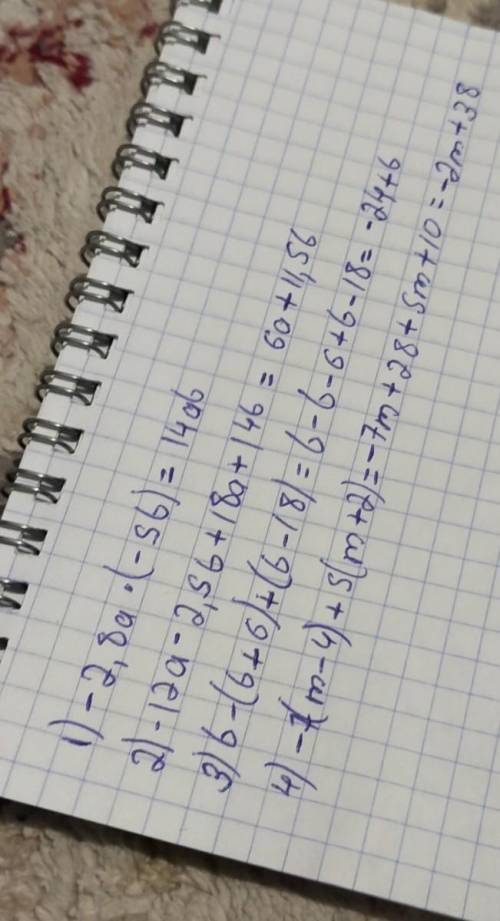 1) -2,8a · (-5b) = 14ab
2) -12a - 2,5b + 18a + 14b = 6a + 11,5b
3) b - (b + 6) + (b - 18) = b - b - 6 + b - 18 = -24 + b
4) -7(m - 4) + 5(m + 2) = -7m + 28 + 5m + 10 = -2m + 38